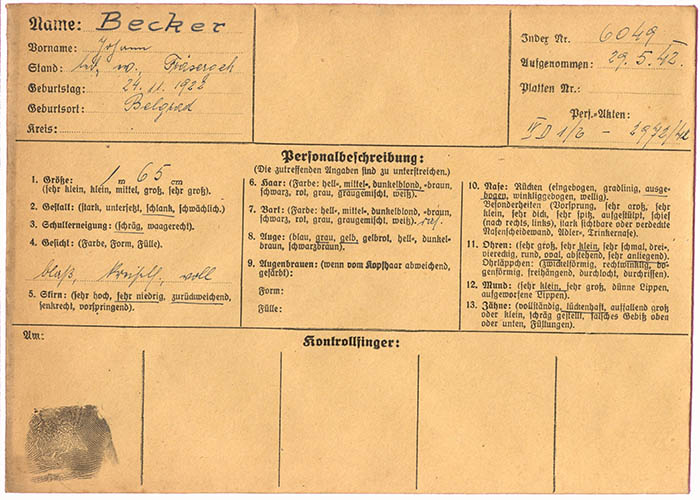 Name: Becker
Vorname: Johann
Stand: led, w,
Geburtstag: 24. 11. 1922
Geburtsort: Belgrad
Kreis:
Index Nr. 6049
Aufgenommen: 29. 5. 42.
Platten Nr.:
Pers.-Akten:
IV D 1/b - 2972/42
Personalbeschreibung:
(Die zutreffenden Angaben sind zu unterstreichen.)
1. Größe: 1 m 65 cm
(sehr klein, klein, mittel, groß, sehr groß).
2. Gestalt: (stark, untersetzt, schlank, schwächlich).
3. Schulterneigung: (schräg, waagerecht).
4. Gesicht: (Farbe, Form, Fülle).
blaß, voll
5. Stirn: (sehr hoch, sehr niedrig, zurückweichend,
senkrecht, vorspringend).
6. Haar: (Farbe: hell-, mittel-, dunkelblond, -braun,
schwarz, rot, grau, graugemischt, weiß).
7. Bart: (Farbe: hell-, mittel-, dunkelblond, -braun,
schwarz, rot, grau, graugemischt, weiß).
8. Auge: (blau, grau, gelb, gelbrot, hell-, dunkel-
braun, schwarzbraun).
9. Augenbrauen: (wenn vom Kopfhaar abweichend,
gefärbt):
Form:
Fülle:
10. Nase: Rücken (eingebogen, gradlinig, ausge-
bogen, winkliggebogen, wellig).
Besonderheiten (Vorsprung, sehr groß, sehr
klein, sehr dick, sehr spitz, aufgestülpt, schief
(nach rechts, links), stark sichtbare oder verdeckte
Nasenscheidewand, Adler-, Trinkernase).
11. Ohren: (sehr groß, sehr klein, sehr schmal, drei-,
viereckig, rund, oval, abstehend, sehr anliegend).
Ohrläppchen: (zwickelförmig, rechtwinklig, bo-
genförmig, freihängend, durchlocht, durchrissen).
12. Mund: (sehr klein, sehr groß, dünne Lippen,
aufgeworfene Lippen).
13. Zähne: (vollständig, lückenhaft, auffallend groß
oder klein, schräg gestellt, falsches Gebiß oben
oder unten, Füllungen).
Am:
Kontrollfinger: